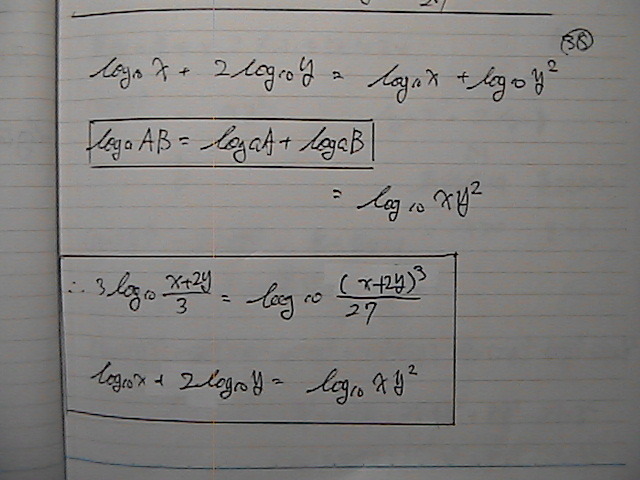 38
log₁₀x + 2log₁₀y = log₁₀x + log₁₀y²
logₐAB = logₐA + logₐB
= log₁₀xy²
∴ 3log₁₀ (x+2y)/3 = log₁₀ (x+2y)³/27
log₁₀x + 2log₁₀y = log₁₀xy²